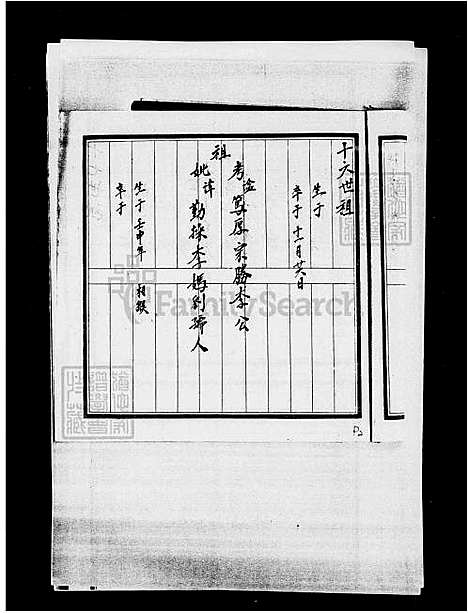 十六世祖
生于
卒于 十一月廿八日
考諡 篤厚宗勝李公
祖
妣諱 勤操李媽劉孺人
生于 壬申年 相猴
卒于
FamilySearch
P2